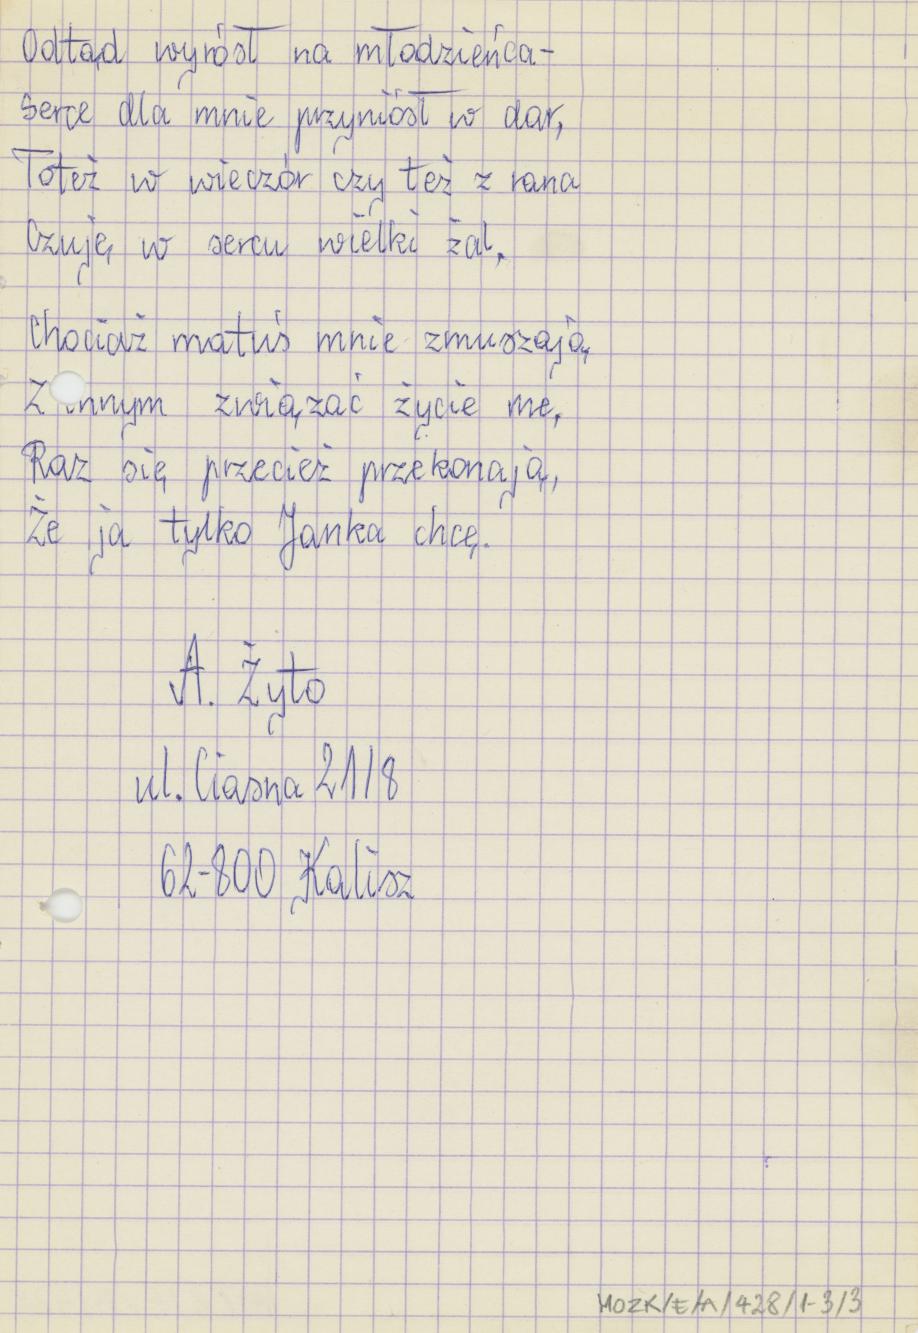 Odtąd wyrósł na młodzieńca-
Serce dla mnie przyniósł w dar,
Toteż w wieczór czy też z rana
Czuję w sercu wielki żal.
Chociaż matuś mnie zmuszają
Z innym związać życie me,
Raz się przecież przekonają,
Że ja tylko Janka chcę.
A. Żyto
ul. Ciasna 21/8
62-800 Kalisz
MOZK/E/A/428/1-3/3